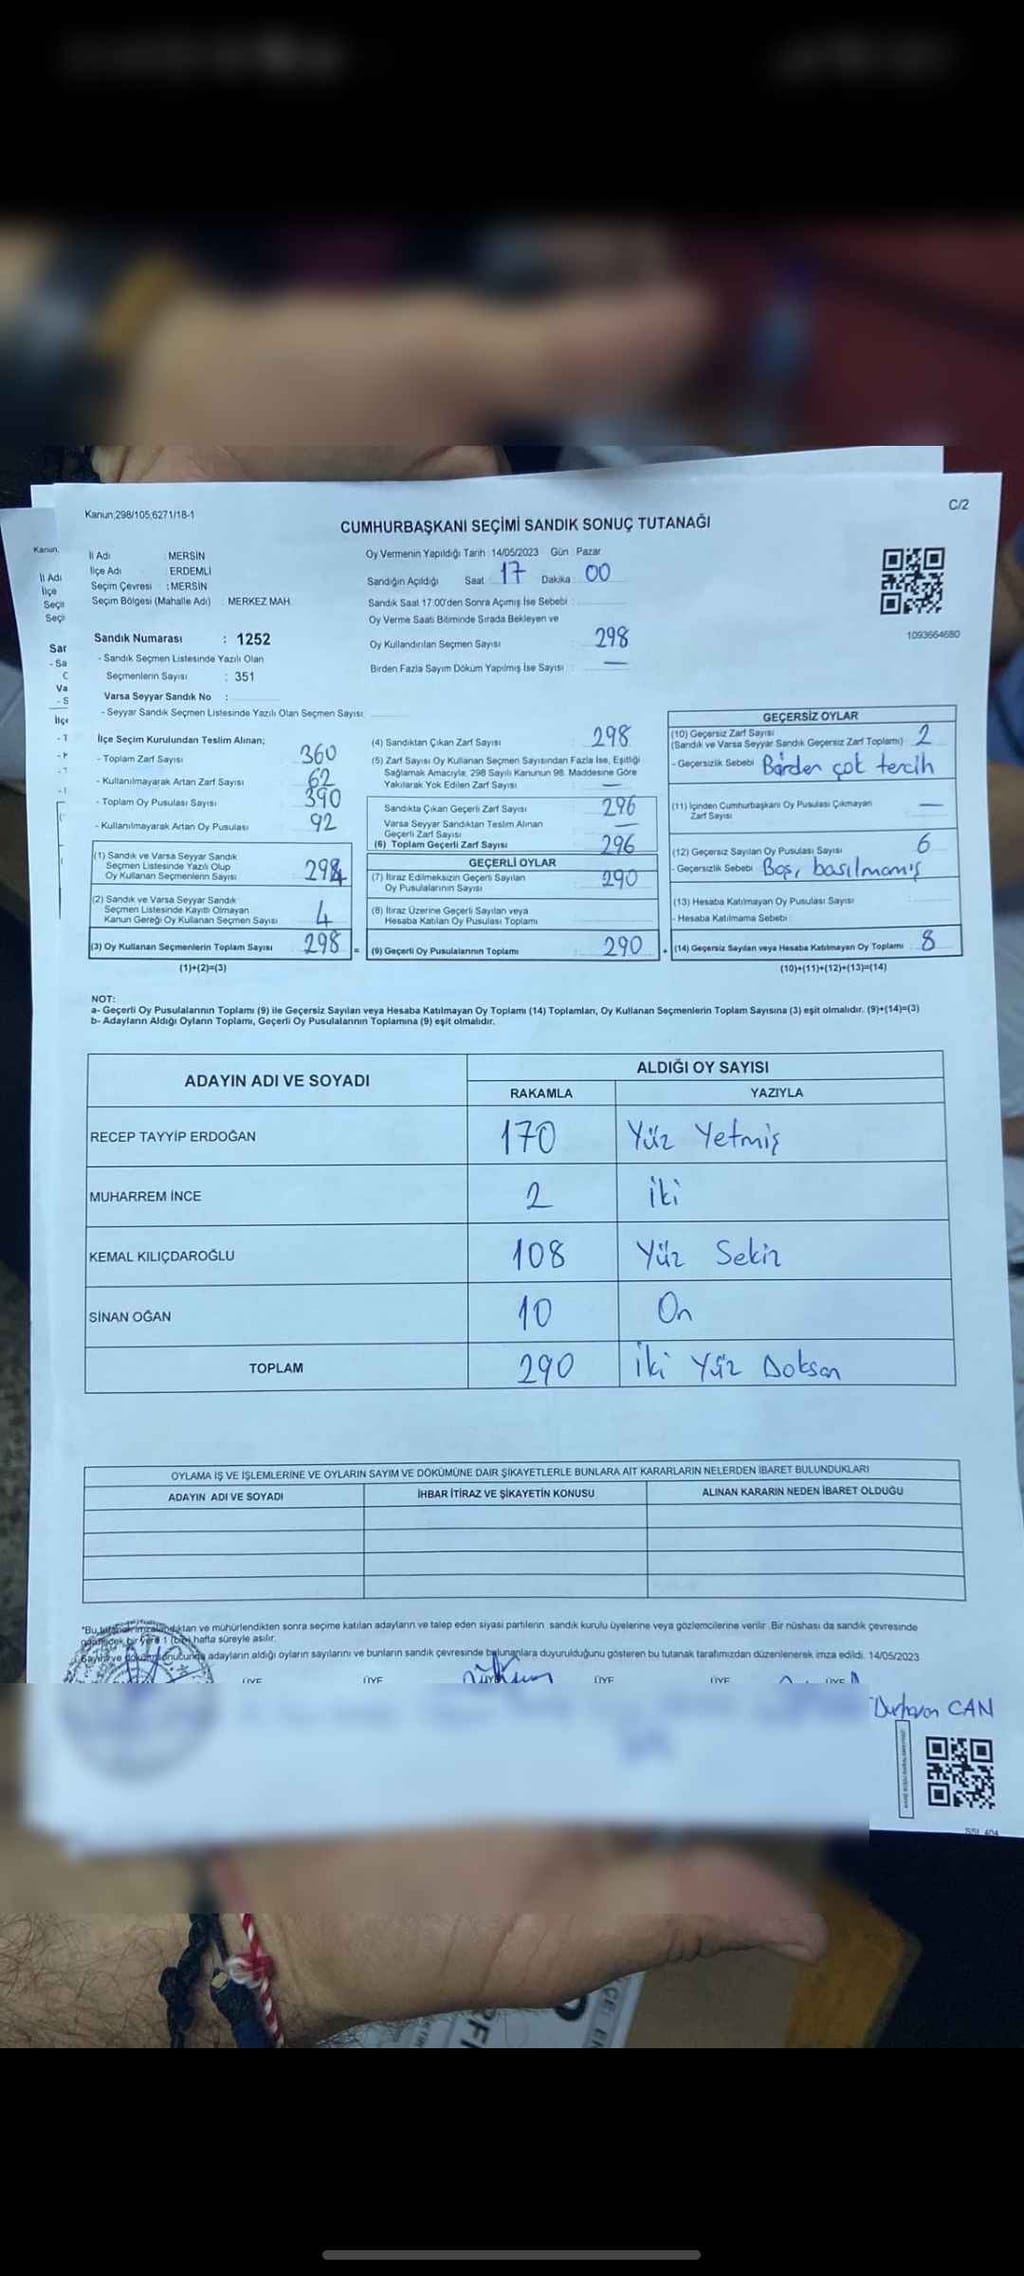 Kanun;298/105;6271/18-1
C/2
CUMHURBAŞKANI SEÇİMİ SANDIK SONUÇ TUTANAĞI
İl Adı : MERSİN
İlçe Adı : ERDEMLİ
Seçim Çevresi : MERSİN
Seçim Bölgesi (Mahalle Adı) : MERKEZ MAH.
Sandık Numarası : 1252
- Sandık Seçmen Listesinde Yazılı Olan
Seçmenlerin Sayısı : 351
Varsa Seyyar Sandık No :
- Seyyar Sandık Seçmen Listesinde Yazılı Olan Seçmen Sayısı:
Oy Vermenin Yapıldığı Tarih :14/05/2023 Gün : Pazar
Sandığın Açıldığı Saat 17 Dakika : 00
Sandık Saat 17.00'den Sonra Açımış İse Sebebi :
Oy Verme Saati Bitiminde Sırada Bekleyen ve
Oy Kullandırılan Seçmen Sayısı : 298
Birden Fazla Sayım Döküm Yapılmış İse Sayısı : —
1093664680
İlçe Seçim Kurulundan Teslim Alınan;
- Toplam Zarf Sayısı 360
- Kullanılmayarak Artan Zarf Sayısı 62
- Toplam Oy Pusulası Sayısı 390
- Kullanılmayarak Artan Oy Pusulası 92
(1) Sandık ve Varsa Seyyar Sandık
Seçmen Listesinde Yazılı Olup
Oy Kullanan Seçmenlerin Sayısı 294
(2) Sandık ve Varsa Seyyar Sandık
Seçmen Listesinde Kayıtlı Olmayan
Kanun Gereği Oy Kullanan Seçmen Sayısı 4
(3) Oy Kullanan Seçmenlerin Toplam Sayısı 298 =
(1)+(2)=(3)
(4) Sandıktan Çıkan Zarf Sayısı 298
(5) Zarf Sayısı Oy Kullanan Seçmen Sayısından Fazla İse, Eşitliği
Sağlamak Amacıyla, 298 Sayılı Kanunun 98. Maddesine Göre
Yakılarak Yok Edilen Zarf Sayısı —
Sandıkta Çıkan Geçerli Zarf Sayısı 296
Varsa Seyyar Sandıktan Teslim Alınan
Geçerli Zarf Sayısı —
(6) Toplam Geçerli Zarf Sayısı 296
GEÇERLİ OYLAR
(7) İtiraz Edilmeksizin Geçerli Sayılan
Oy Pusulalarının Sayısı 290
(8) İtiraz Üzerine Geçerli Sayılan veya
Hesaba Katılan Oy Pusulası Toplamı
(9) Geçerli Oy Pusulalarının Toplamı 290 +
GEÇERSİZ OYLAR
(10) Geçersiz Zarf Sayısı
(Sandık ve Varsa Seyyar Sandık Geçersiz Zarf Toplamı) 2
- Geçersizlik Sebebi Birden çok tercih
(11) İçinden Cumhurbaşkanı Oy Pusulası Çıkmayan
Zarf Sayısı —
(12) Geçersiz Sayılan Oy Pusulası Sayısı 6
- Geçersizlik Sebebi Boş, basılmamış
(13) Hesaba Katılmayan Oy Pusulası Sayısı
- Hesaba Katılmama Sebebi :
(14) Geçersiz Sayılan veya Hesaba Katılmayan Oy Toplamı 8
(10)+(11)+(12)+(13)=(14)
NOT:
a- Geçerli Oy Pusulalarının Toplamı (9) ile Geçersiz Sayılan veya Hesaba Katılmayan Oy Toplamı (14) Toplamları, Oy Kullanan Seçmenlerin Toplam Sayısına (3) eşit olmalıdır. (9)+(14)=(3)
b- Adayların Aldığı Oyların Toplamı, Geçerli Oy Pusulalarının Toplamına (9) eşit olmalıdır.
ADAYIN ADI VE SOYADI
ALDIĞI OY SAYISI
RAKAMLA YAZIYLA
RECEP TAYYİP ERDOĞAN 170 Yüz Yetmiş
MUHARREM İNCE 2 iki
KEMAL KILIÇDAROĞLU 108 Yüz Sekiz
SİNAN OĞAN 10 On
TOPLAM 290 iki Yüz Doksan
OYLAMA İŞ VE İŞLEMLERİNE VE OYLARIN SAYIM VE DÖKÜMÜNE DAİR ŞİKAYETLERLE BUNLARA AİT KARARLARIN NELERDEN İBARET BULUNDUKLARI
ADAYIN ADI VE SOYADI İHBAR İTİRAZ VE ŞİKAYETİN KONUSU ALINAN KARARIN NEDEN İBARET OLDUĞU
*Bu ve mühürlendikten sonra seçime katılan adayların ve talep eden siyasi partilerin sandık kurulu üyelerine veya gözlemcilerine verilir. Bir nüshası da sandık çevresinde
bir yere 1 (bir) hafta süreyle asılır.
adayların aldığı oyların sayılarını ve bunların sandık çevresinde bulunanlara duyurulduğunu gösteren bu tutanak tarafımızdan düzenlenerek imza edildi. 14/05/2023
ÜYE ÜYE ÜYE ÜYE ÜYE
CAN